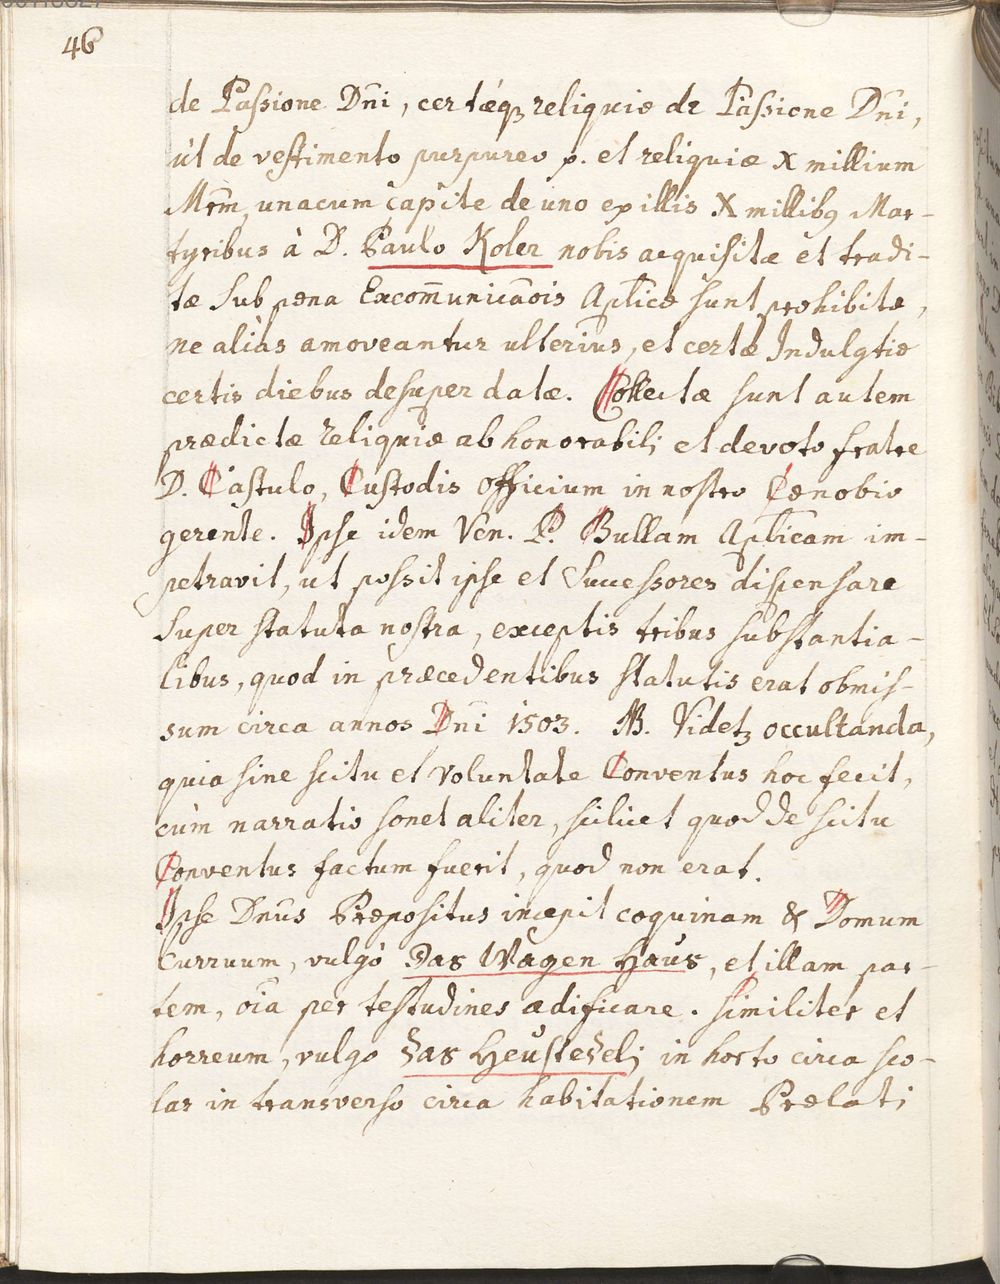 46
de Passione Dn̄i, certæq́ꝫ reliquiæ de Passione Dn̄i,
ut de vestimento purpureo p. et reliquiæ X millium
Mrm̄, unacum capite de uno ex illis X millibꝫ Mar-
tyribus à D. Paulo Koler nobis acquisitæ et tradi-
tæ sub pœna Excom̄unicaōis Aplicæ sunt prohibitæ,
ne aliàs amoveantur ulterius, et certæ Indulgtiæ
certis diebus desuper datæ. Collectæ sunt autem
prædictæ reliquiæ ab honorabili et devoto fratre
D. Castulo, Custodis officium in nostro Cœnobio
gerente. Ipse idem Ven. P. Bullam Aplicam im-
petravit, ut possit ipse et Successores dispensare
super statuta nostra, exceptis tribus substantia-
libus, quod in præcedentibus statutis erat obmis-
sum circa annos Dn̄i 1503. NB. Videtꝫ occultanda,
quia sine scitu et voluntate Conventus hoc fecit,
cùm narratio sonet aliter, scilicet quod de scitu
Conventus factum fuerit, quod non erat.
Ipse Dn̄us Præpositus incepit coquinam & Domum
Curruum, vulgò Das Wagen Haus, et illam par-
tem, oīa per testudines ædificare. Similiter et
horreum, vulgo das Heustedel; in horto circa sco-
las in transverso circa habitationem Prælati